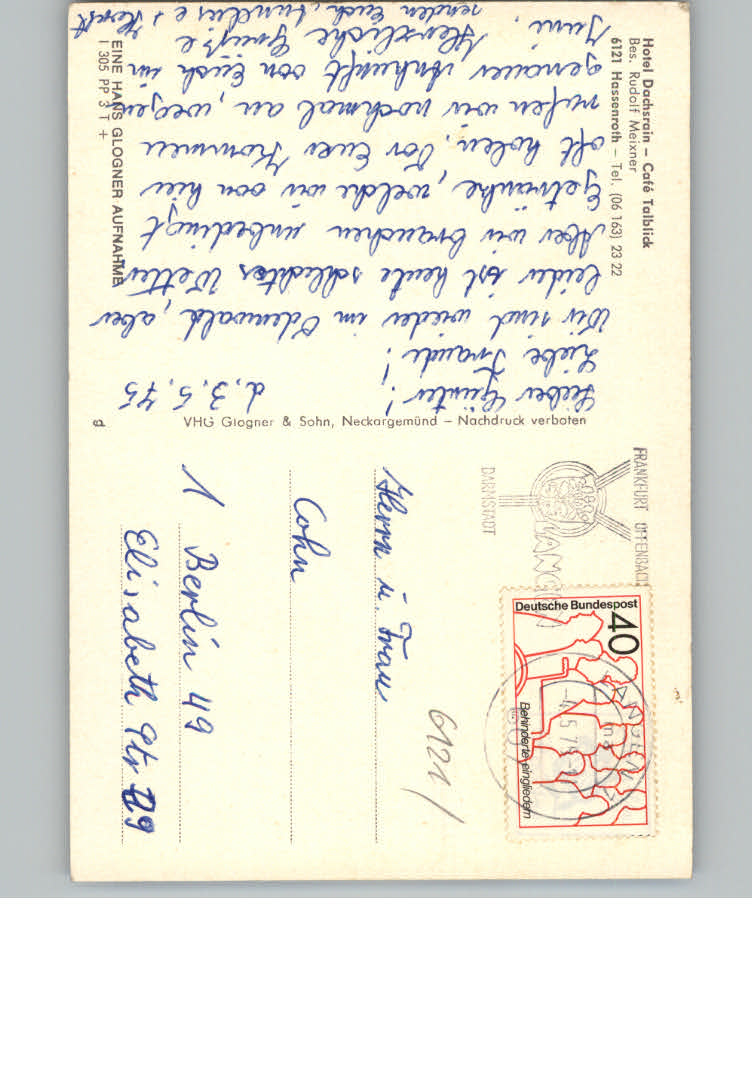 Hotel Dachsrain – Café Talblick
Bes. Rudolf Meixner
6121 Hassenroth – Tel. (06 163) 23 22
d. 3.5.75
Lieber Günter!
Liebe Traude!
Wir sind wieder im Odenwald, aber
leider ist heute schlechtes Wetter.
Aber wir brauchen unbedingt
Getränke, welche wir von hier
oft holen. Vor Euer Kommen
rufen wir nochmal an, wegen
genauer Ankunft von Euch im
Juni. Herzliche Grüße
senden Euch, &
EINE HANS GLOGNER AUFNAHME
I 305 PP 3 T +
VHG Glogner & Sohn, Neckargemünd – Nachdruck verboten
g
FRANKFURT OFFENBACH
LANGEN
DARMSTADT
Deutsche Bundespost
40
Behinderte eingliedern
LANGEN
6121/
Herrn u. Frau
Cohn
1 Berlin 49
Elisabeth Str 29